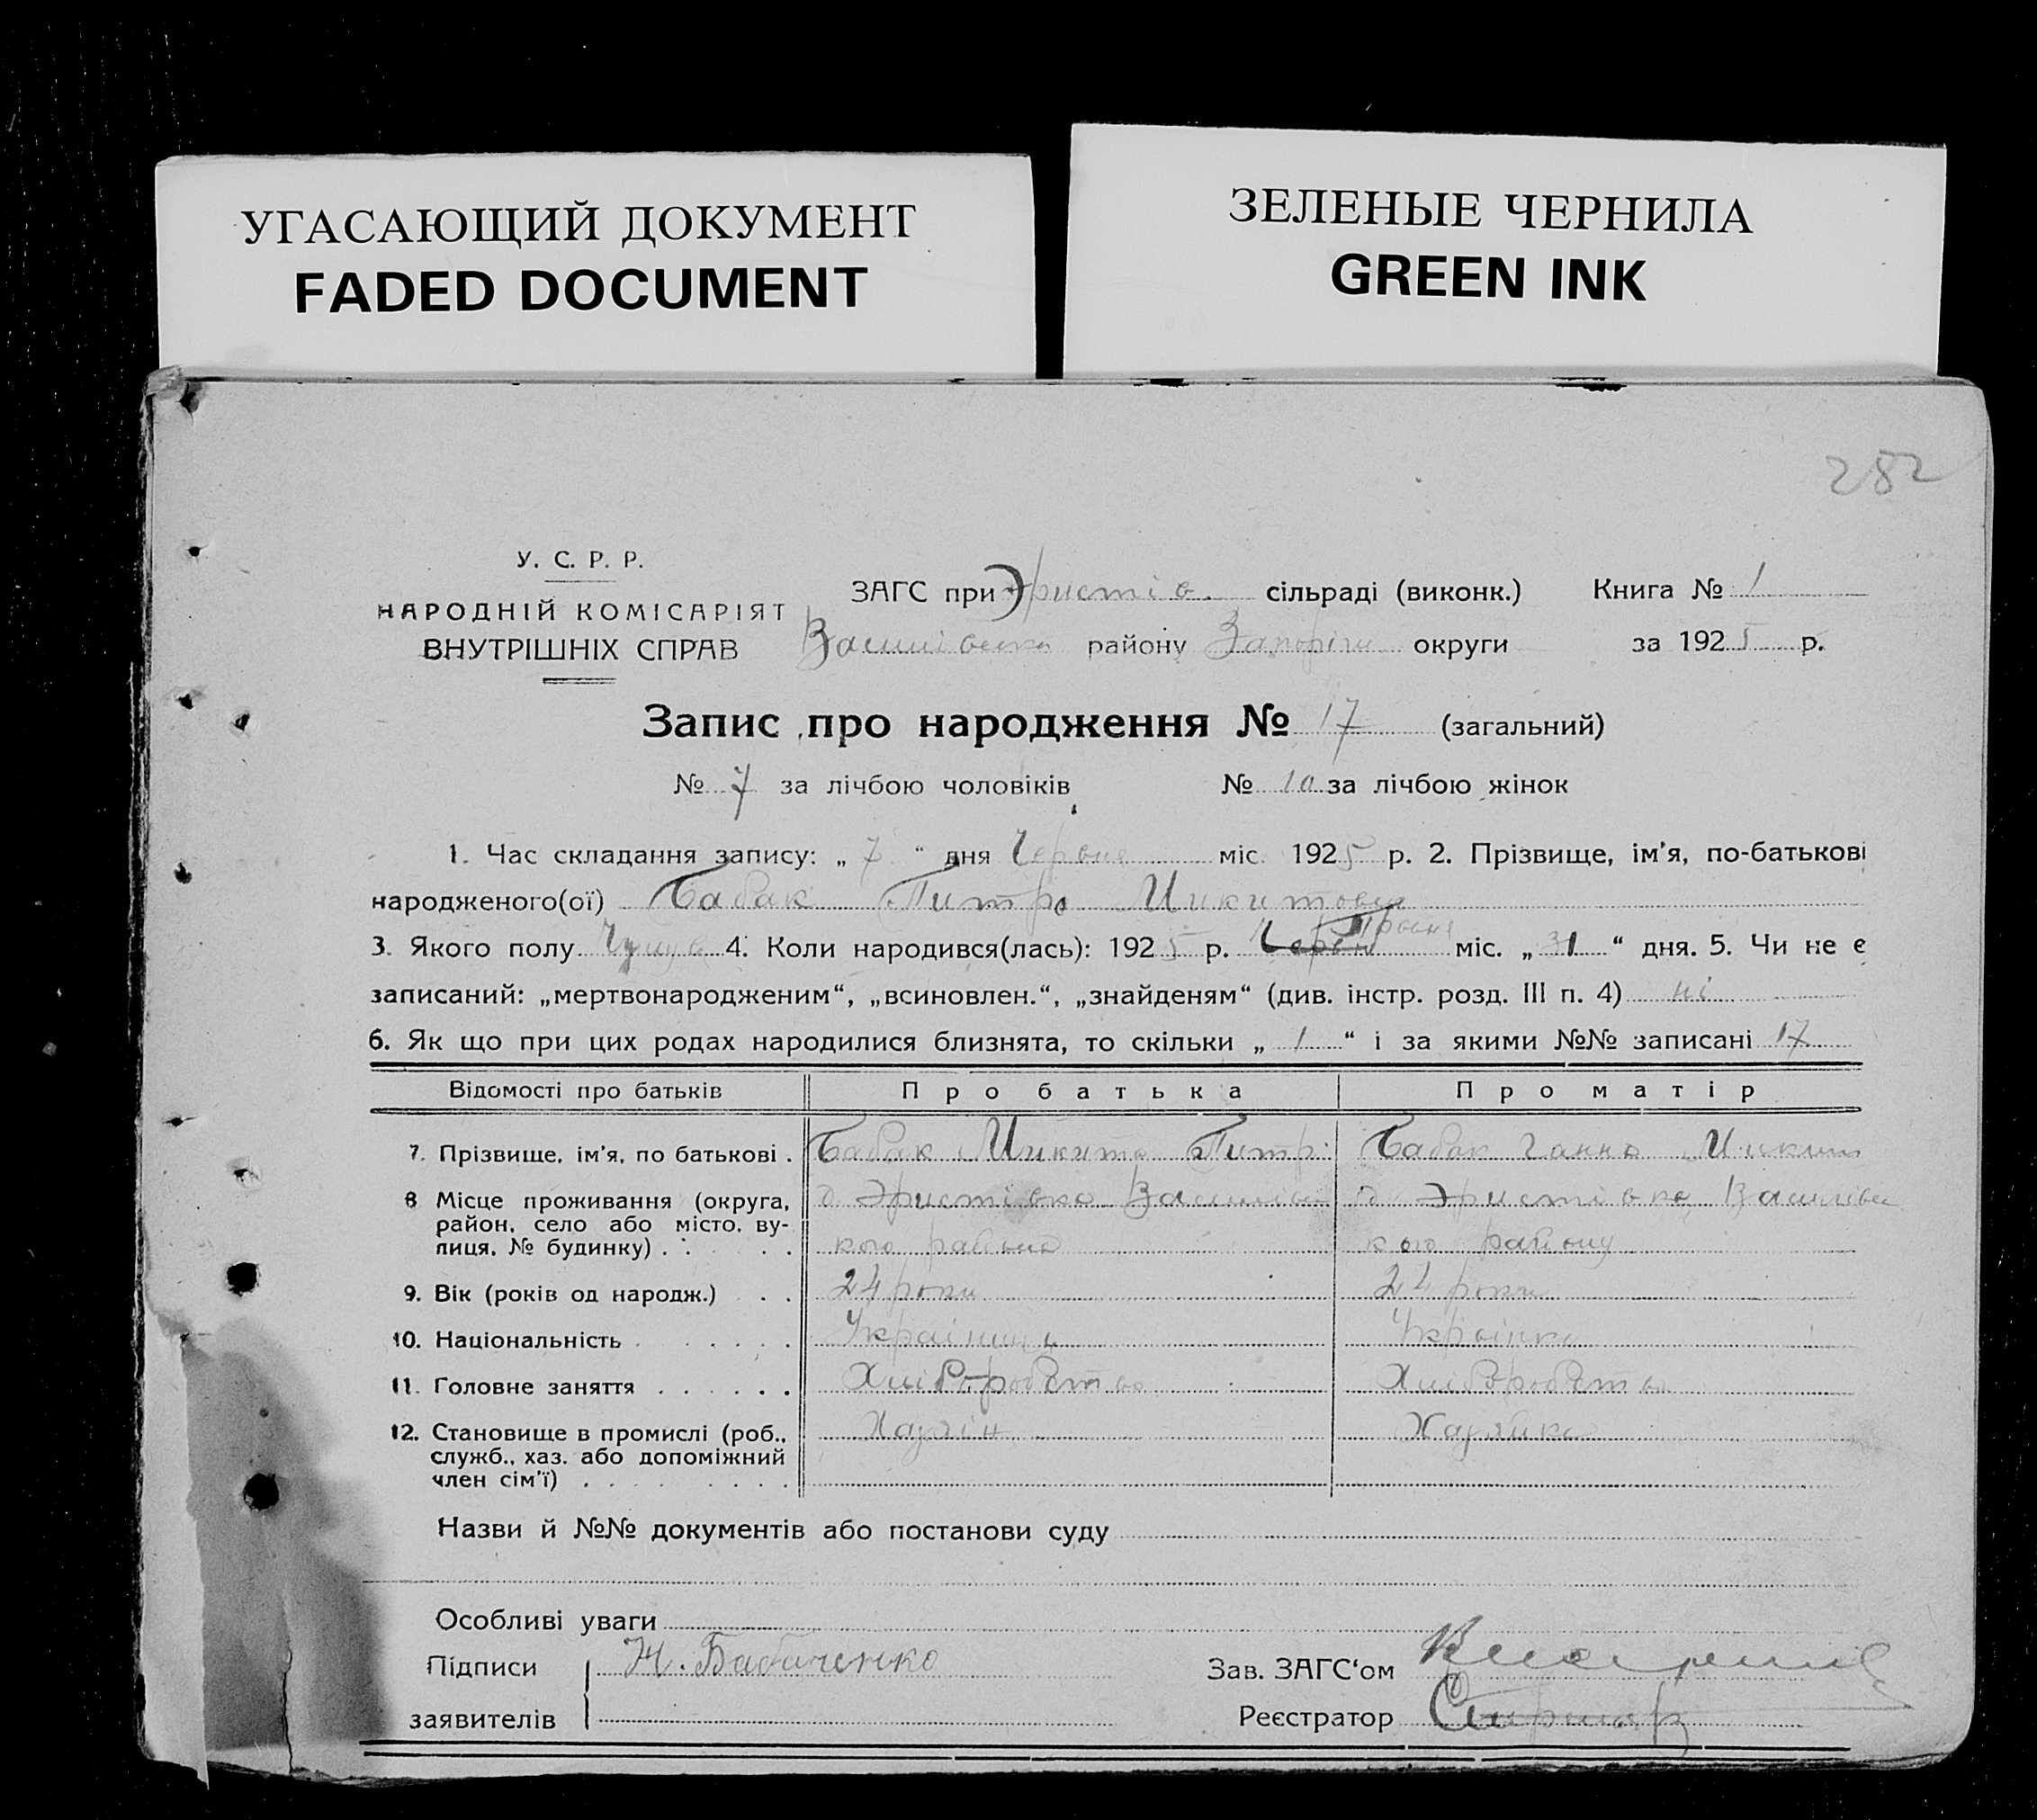 УГАСАЮЩИЙ ДОКУМЕНТ
FADED DOCUMENT
ЗЕЛЕНЫЕ ЧЕРНИЛА
GREEN INK
282
У. С. Р. Р.
НАРОДНІЙ КОМІСАРІЯТ
ВНУТРІШНІХ СПРАВ
ЗАГС при Эристів. сільраді (виконк.) Книга № 1
району округи за 1925 р.
Запис про народження № 17 (загальний)
№ 7 за лічбою чоловіків № 10 за лічбою жінок
1. Час складання запису: „ 7 “ дня Червня міс. 1925 р. 2. Прізвище, ім'я, по-батькові
народженого(ої) Бабак Питро Микитович
3. Якого полу 4. Коли народився(лась): 1925 р. міс. „ 31 “ дня. 5. Чи не є
записаний: „мертвонародженим“, „всиновлен.“, „знайденям“ (див. інстр. розд. III п. 4) ні
6. Як що при цих родах народилися близнята, то скільки „ 1 “ і за якими №№ записані 17
Відомості про батьків Про батька Про матір
7. Прізвище, ім'я, по батькові . Бабак Микита Питр. Бабак Ганна Микит
8 Місце проживання (округа, Эристівка Василівсь Эристівка Василівсь
район, село або місто, ву-
лиця, № будинку) . . . . кого района кого району
9. Вік (років од народж.) . . 24 роки 24 роки
10. Національність . . . . . . Українець Українка
11. Головне заняття . . . . . . Хліборобство Хліборобство
12. Становище в промислі (роб., Хазяїн Хазяйка
служб., хаз. або допоміжний
член сім'ї) . . . . . . . .
Назви й №№ документів або постанови суду
Особливі уваги
Підписи Бабиченко Зав. ЗАГС'ом
заявителів Реєстратор